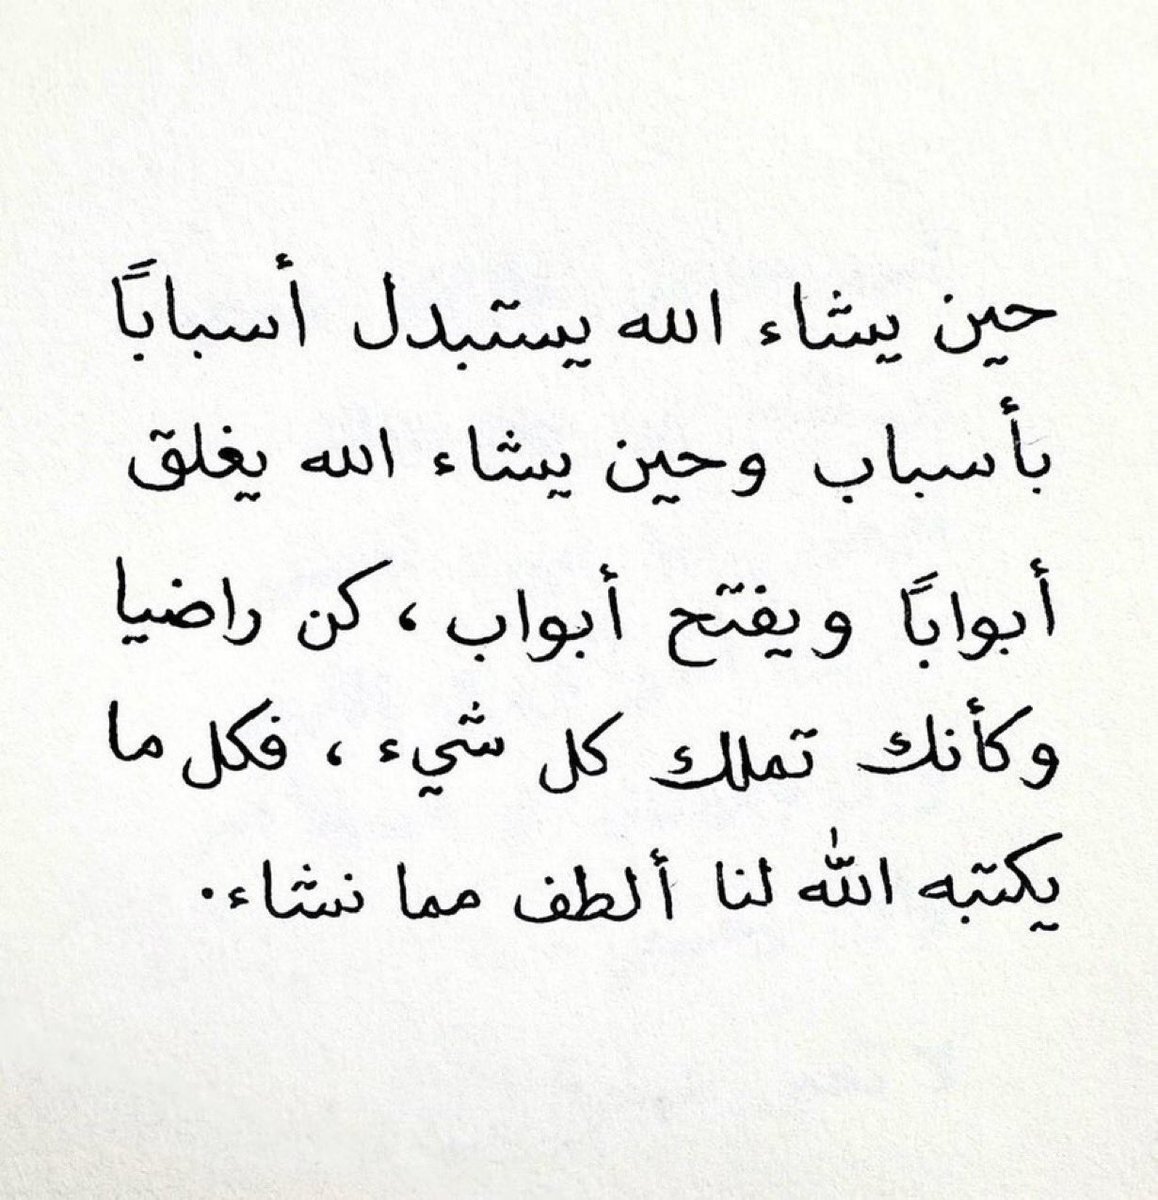 حين يشاء الله يستبدل أسبابًا
بأسباب وحين يشاء الله يغلق
أبوابًا ويفتح أبواب ، كن راضيا
وكأنك تملك كل شيء ، فكل ما
يكتبه الله لنا ألطف مما نشاء.